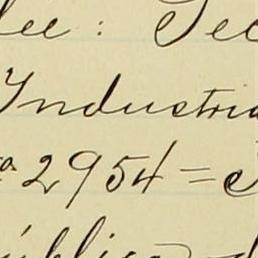 lee: Sec
Industria
a 2954 =
ública d